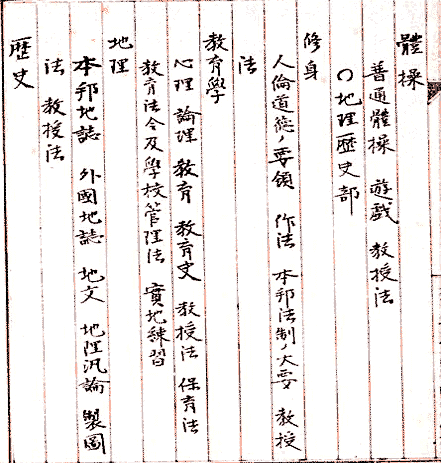 體操
普通體操 遊戯 教授法
○地理歴史部
修身
人倫道徳ノ要領 作法 本邦法制ノ大要 教授
法
教育學
心理 論理 教育 教育史 教授法 保育法
教育法令及學校管理法 實地練習
地理
本邦地誌 外國地誌 地文 地理汎論 製圖
法 教授法
歴史